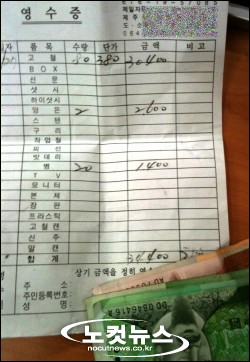 영 수 증
품 목 수량 단가 금 액 비 고
고 철 80 380 30400
B O X
신 문
샷 시
하이샷시
양 은 2 2600
스 텐
구 리
작업철
피 선
밧데리
병 20 1400
T V
모니터
본 체
장 판
프라스틱
고철캔
신 주
알 캔
합계
상기 금액을 정히 영수
주민등록번호:
성 명:
노컷뉴스
nocutnews.co.kr